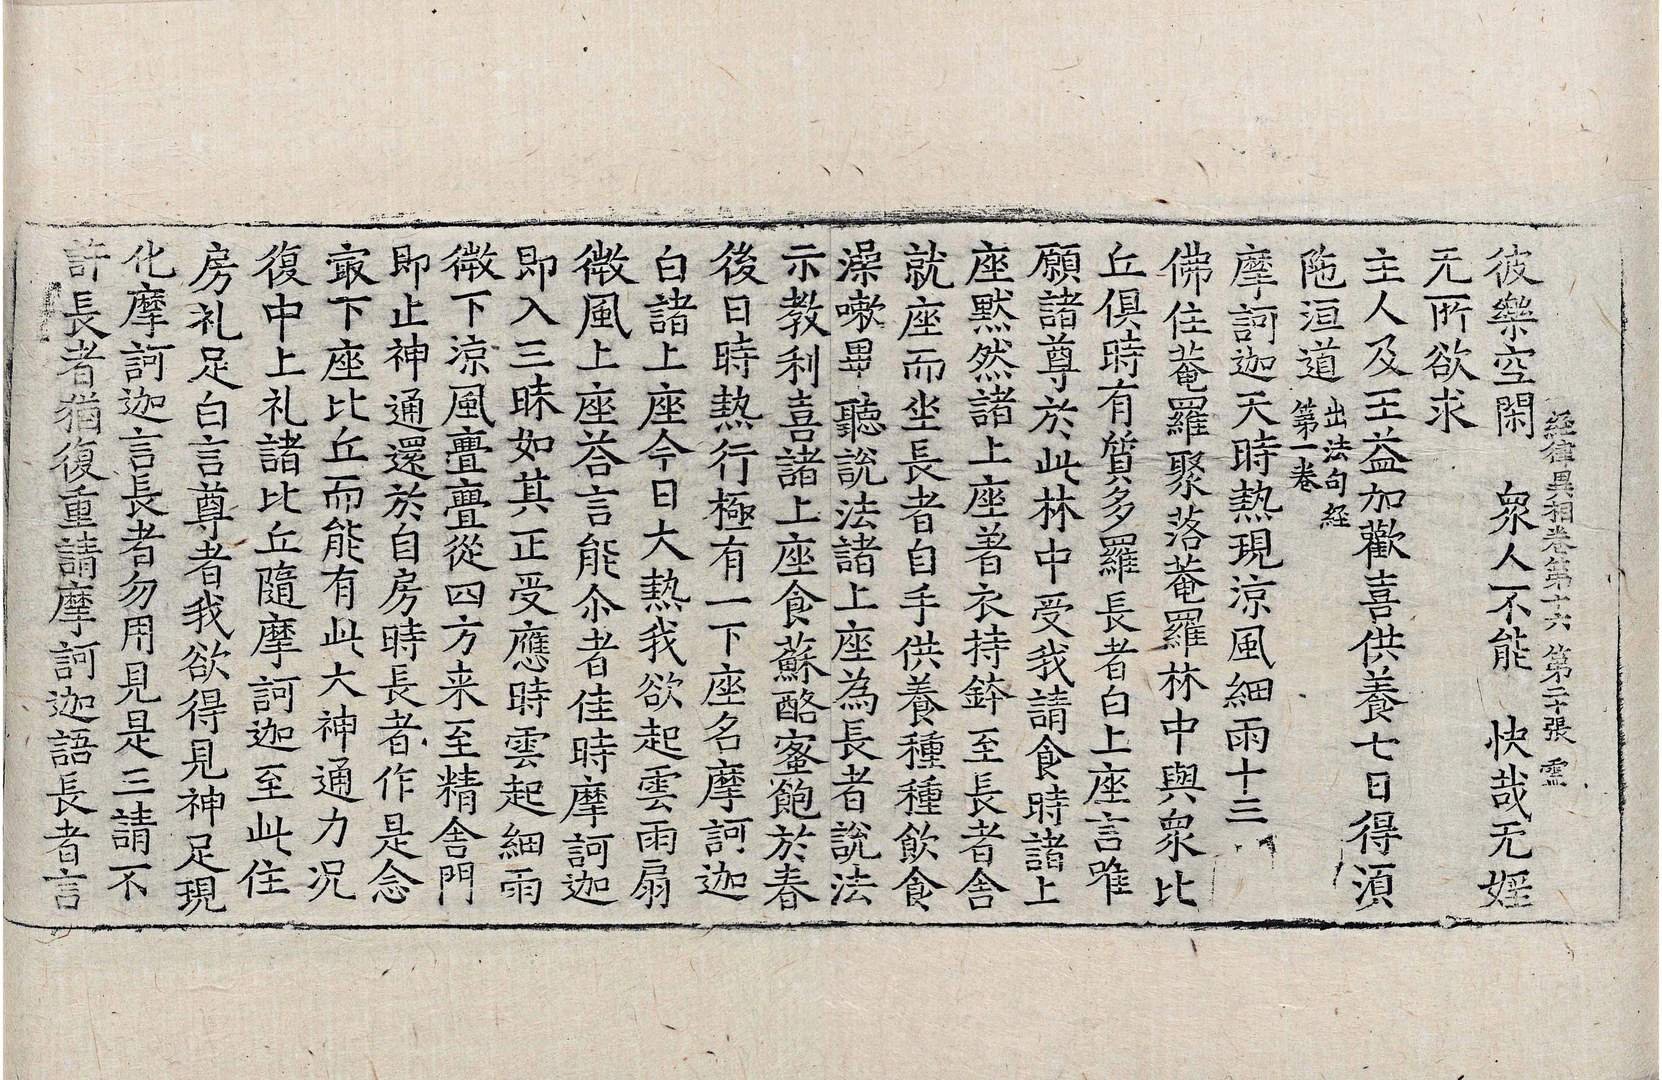 経律異相卷第十六 第二十張 霊
彼樂空閑 衆人不能 快哉无婬
无所欲求
主人及王益加歡喜供養七日得湏
陁洹道 出法句経
第一卷
摩訶迦天時熱現涼風細雨十三
佛住菴羅聚落菴羅林中與衆比
丘俱時有質多羅長者白上座言唯
願諸尊於此林中受我請食時諸上
座默然諸上座著衣持鉢至長者舍
就座而坐長者自手供養種種飲食
澡嗽畢聽說法諸上座為長者說法
示教利喜諸上座食蘇酪蜜飽於春
後日時熱行極有一下座名摩訶迦
白諸上座今日大熱我欲起雲雨扇
微風上座荅言能尒者佳時摩訶迦
即入三昧如其正受應時雲起細雨
微下涼風亹亹從四方来至精舍門
即止神通還於自房時長者作是念
冣下座比丘而能有此大神通力况
復中上礼諸比丘隨摩訶迦至此住
房礼足白言尊者我欲得見神足現
化摩訶迦言長者勿用見是三請不
許長者猶復重請摩訶迦語長者言